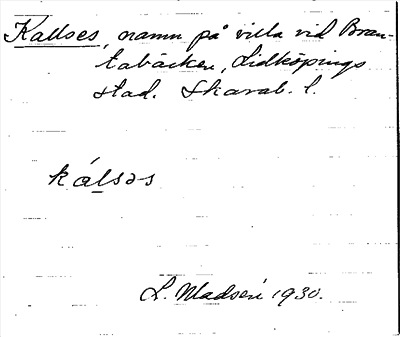 Kallses, namn på villa vid Bran-
tabäcken, Lidköpings
stad. Skarab. l.
kálsəs
L. Madsén 1930.